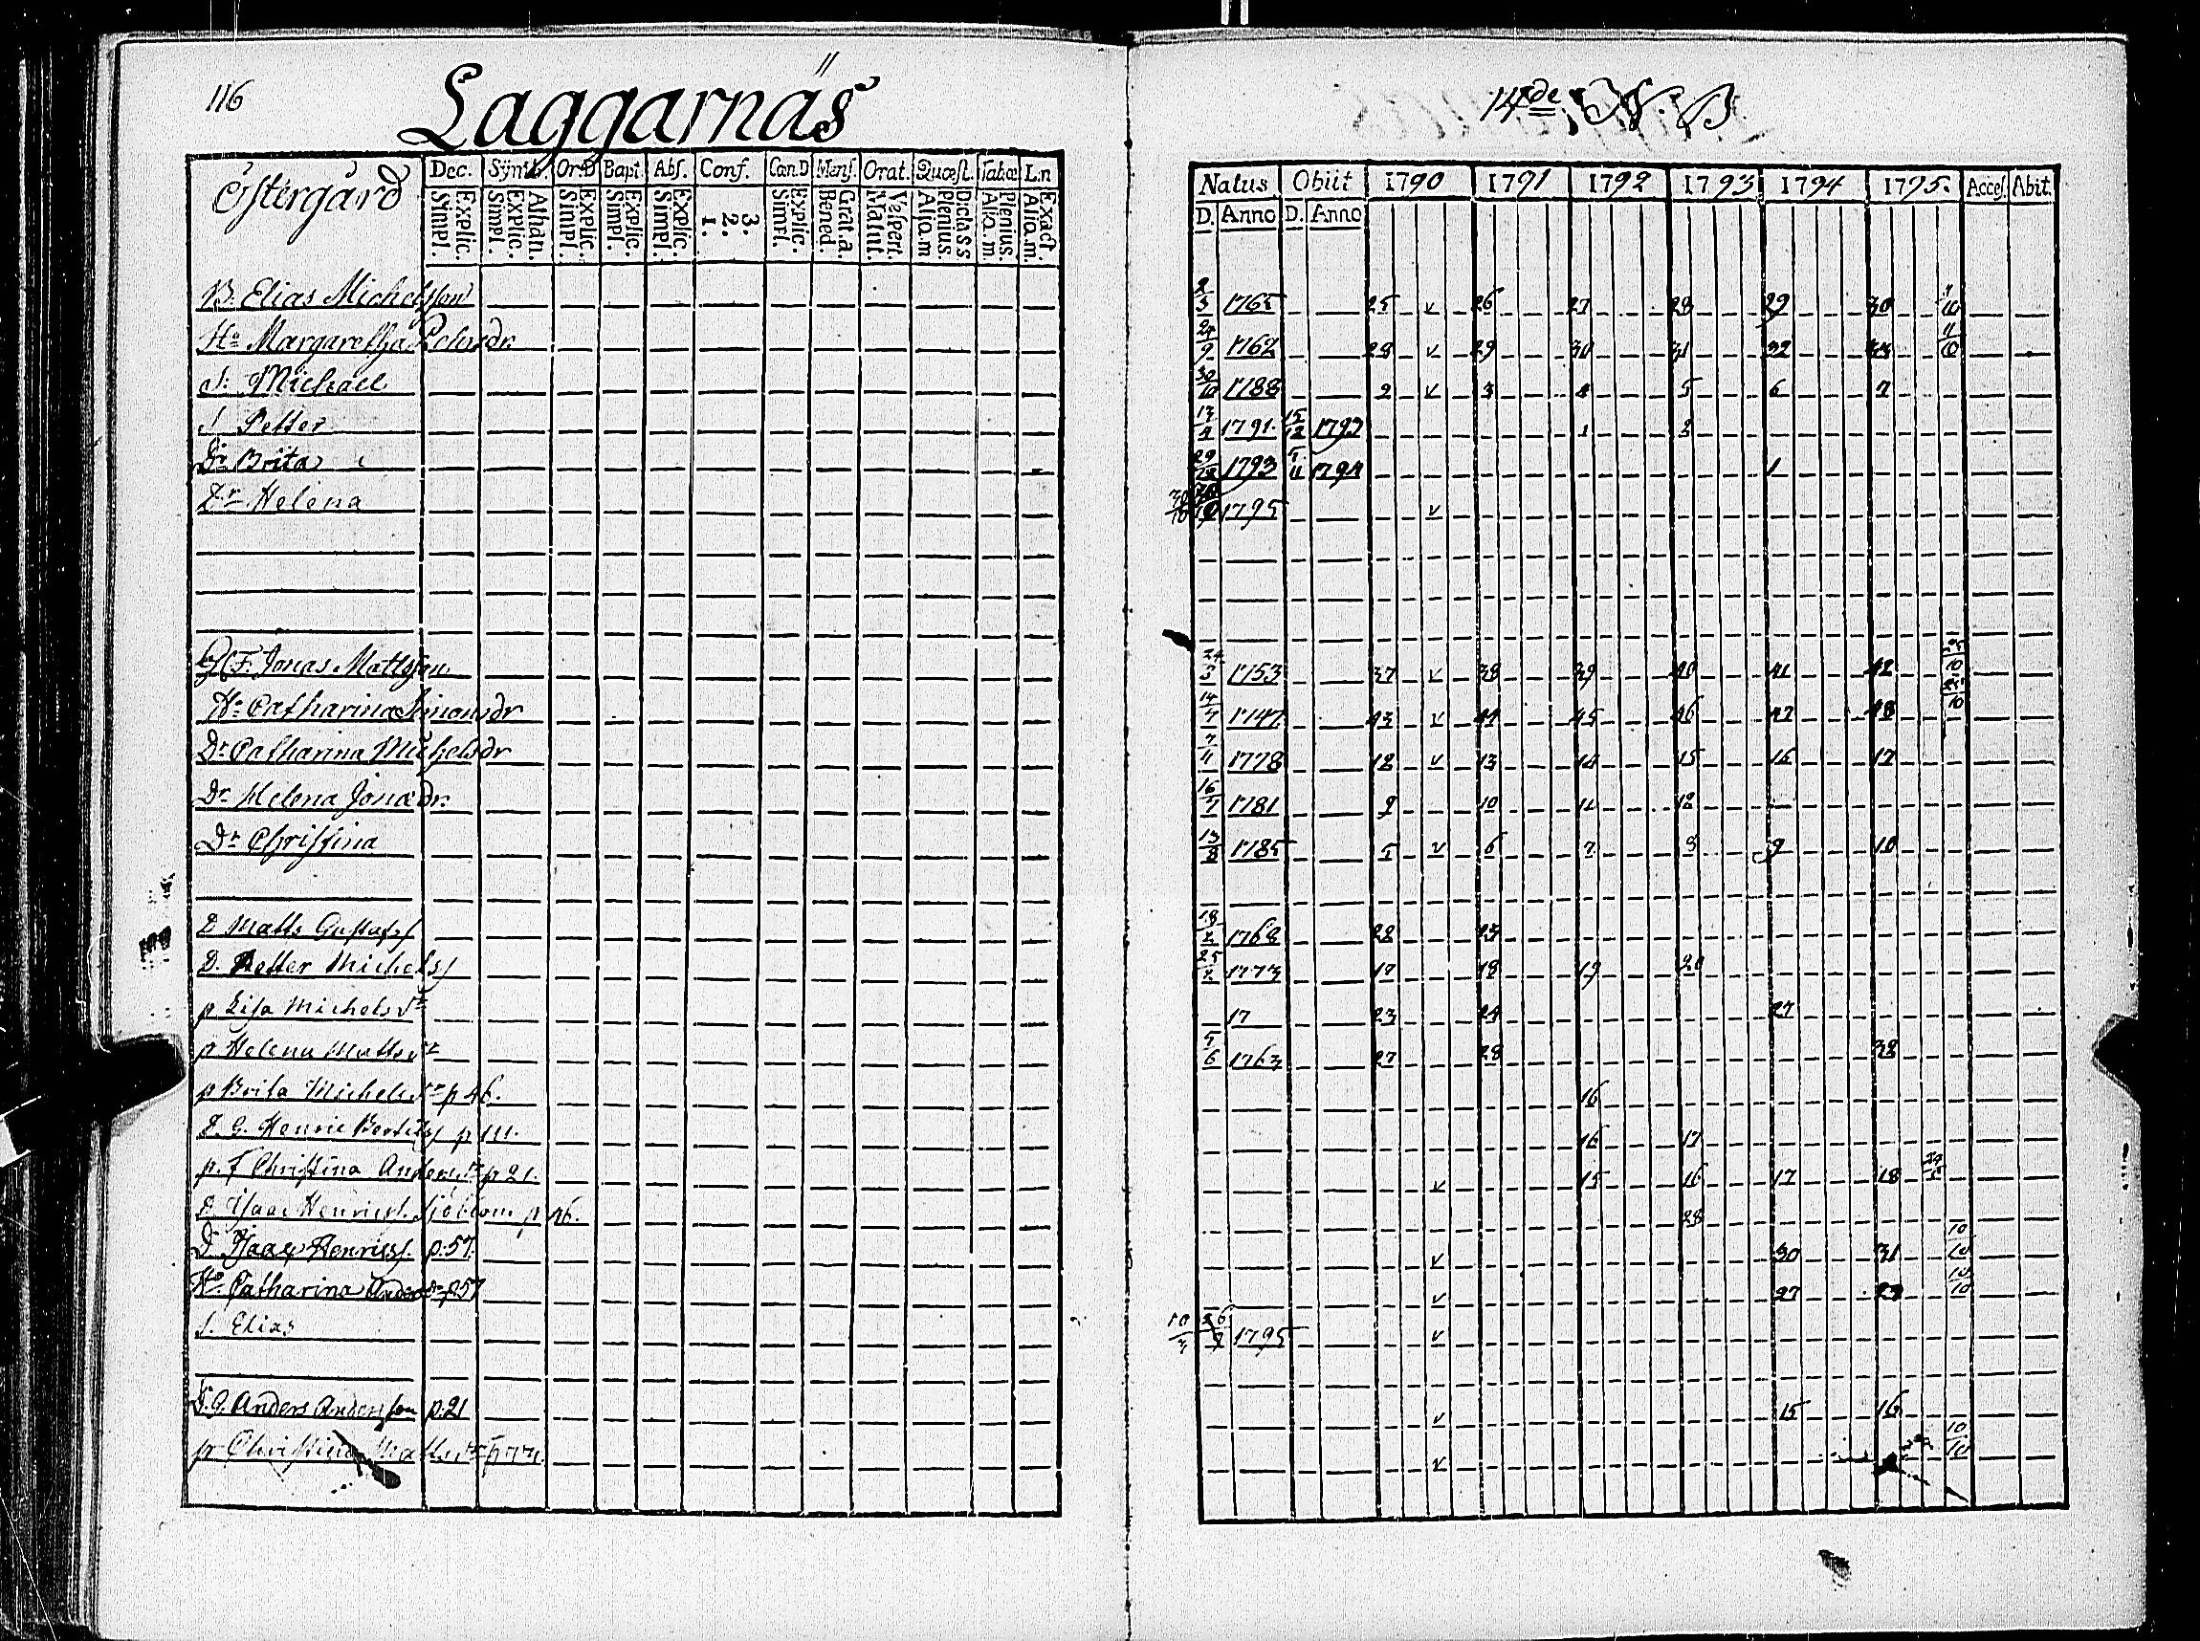 116
Laggarnäs
14de N B
Östergård Dec. Symb. Or.D Bapt. Abs. Conf. Cœn.D Mens. Orat. Quæst. Tabœ L.n
Simpl. Explic. Simpl. Explic. Athan. Simpl. Explic. Simpl. Explic. Simpl. Explic. 1. 2. 3. Simpl. Explic. Bened. Grat.a. Matut. Vespert. Aliq.m Plenius. Dictass Aliq.m Plenius. Aliq.m. Exact
Natus Obiit 1790 1791 1792 1793 1794 1795. Acces. Abit.
D. Anno D. Anno
B. Elias Michelsson 2/3 1765 25 v 26 27 28 29 30
Hu Margaretha Petersdr 24/9 1762 28 v 29 30 31 32 33
S. Michael 30/10 1788 2 v 3 4 5 6 7
S. Petter 13/4 1791 15/12 1792 1 2
Dr Brita 29/12 1793 5/11 1794 1
Dr Helena 30/10 1795 v
F. Jonas Mattsson 24/3 1753 37 v 38 39 40 41 42 25/10
Hu Catharina Simonsdr 14/7 1747 43 v 44 45 46 47 48 25/10
Dr Catharina Michelsdr 7/11 1778 12 v 13 14 15 16 17
Dr Helena Jonædr. 16/7 1781 9 10 11 12
Dr Christina 13/8 1785 5 v 6 7 8 9 10
D Matts Gustafss 18/2 1768 28 23
D. Petter Michelss 25/2 1773 17 18 19 20
p Lisa Michelsdr 17 23 24 27
p Helena Mattsdr 5/6 1763 27 28 38
p Brita Michelsdr p 46. 16
D. G. Henric Bertilss p 111. 16 17
p. f Christina Andersdr p 21. v 15 16 17 18
D. Isaac Henricss. Sjöblom p 96. 28
D. Isaac Henricss. p. 57. v 30 31 10/10
Hu Catharina Andersdr p 57 v 27 28 10/10
S. Elias 10/3 1795 v
D. G. Anders Andersson p. 21 v 15 16
p Christina Mattsdr v 10/10